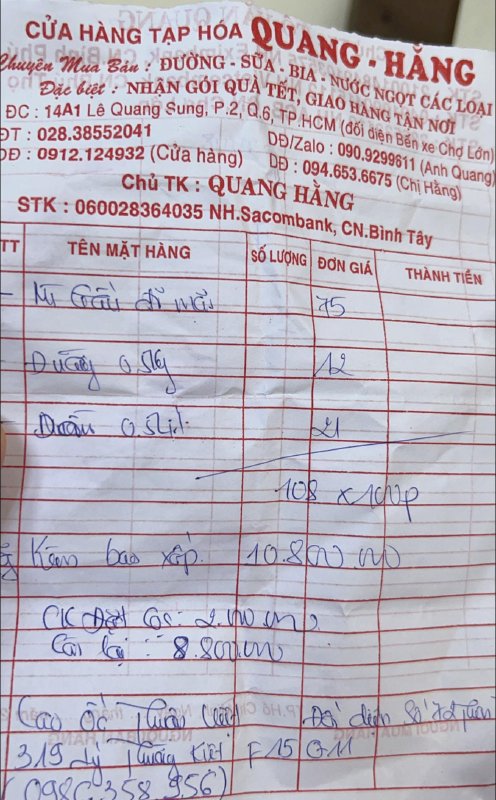 CỬA HÀNG TẠP HÓA QUANG - HẰNG
Chuyên Mua Bán : ĐƯỜNG - SỮA - BIA - NƯỚC NGỌT CÁC LOẠI
Đặc biệt : NHẬN GÓI QUÀ TẾT, GIAO HÀNG TẬN NƠI
ĐC : 14A1 Lê Quang Sung, P.2, Q.6, TP.HCM (đối diện Bến xe Chợ Lớn)
ĐT : 028.38552041 DĐ/Zalo : 090.9299611 (Anh Quang)
DĐ : 0912.124932 (Cửa hàng) DĐ : 094.653.6675 (Chị Hằng)
Chủ TK : QUANG HẰNG
STK : 060028364035 NH.Sacombank, CN.Bình Tây
TT TÊN MẶT HÀNG SỐ LƯỢNG ĐƠN GIÁ THÀNH TIỀN
- Mì Gấu đỏ 75
- Đường 0.5kg 12
- Dầu 0.5lít 21
108 x 100p
Kèm bao xốp. 10.800.000
CK Đặt cọc: 2.000.000
Còn lại : 8.800.000
Cao Ốc Thuận Việt Đối diện Số
319 Lý Thường Kiệt F15 Q11